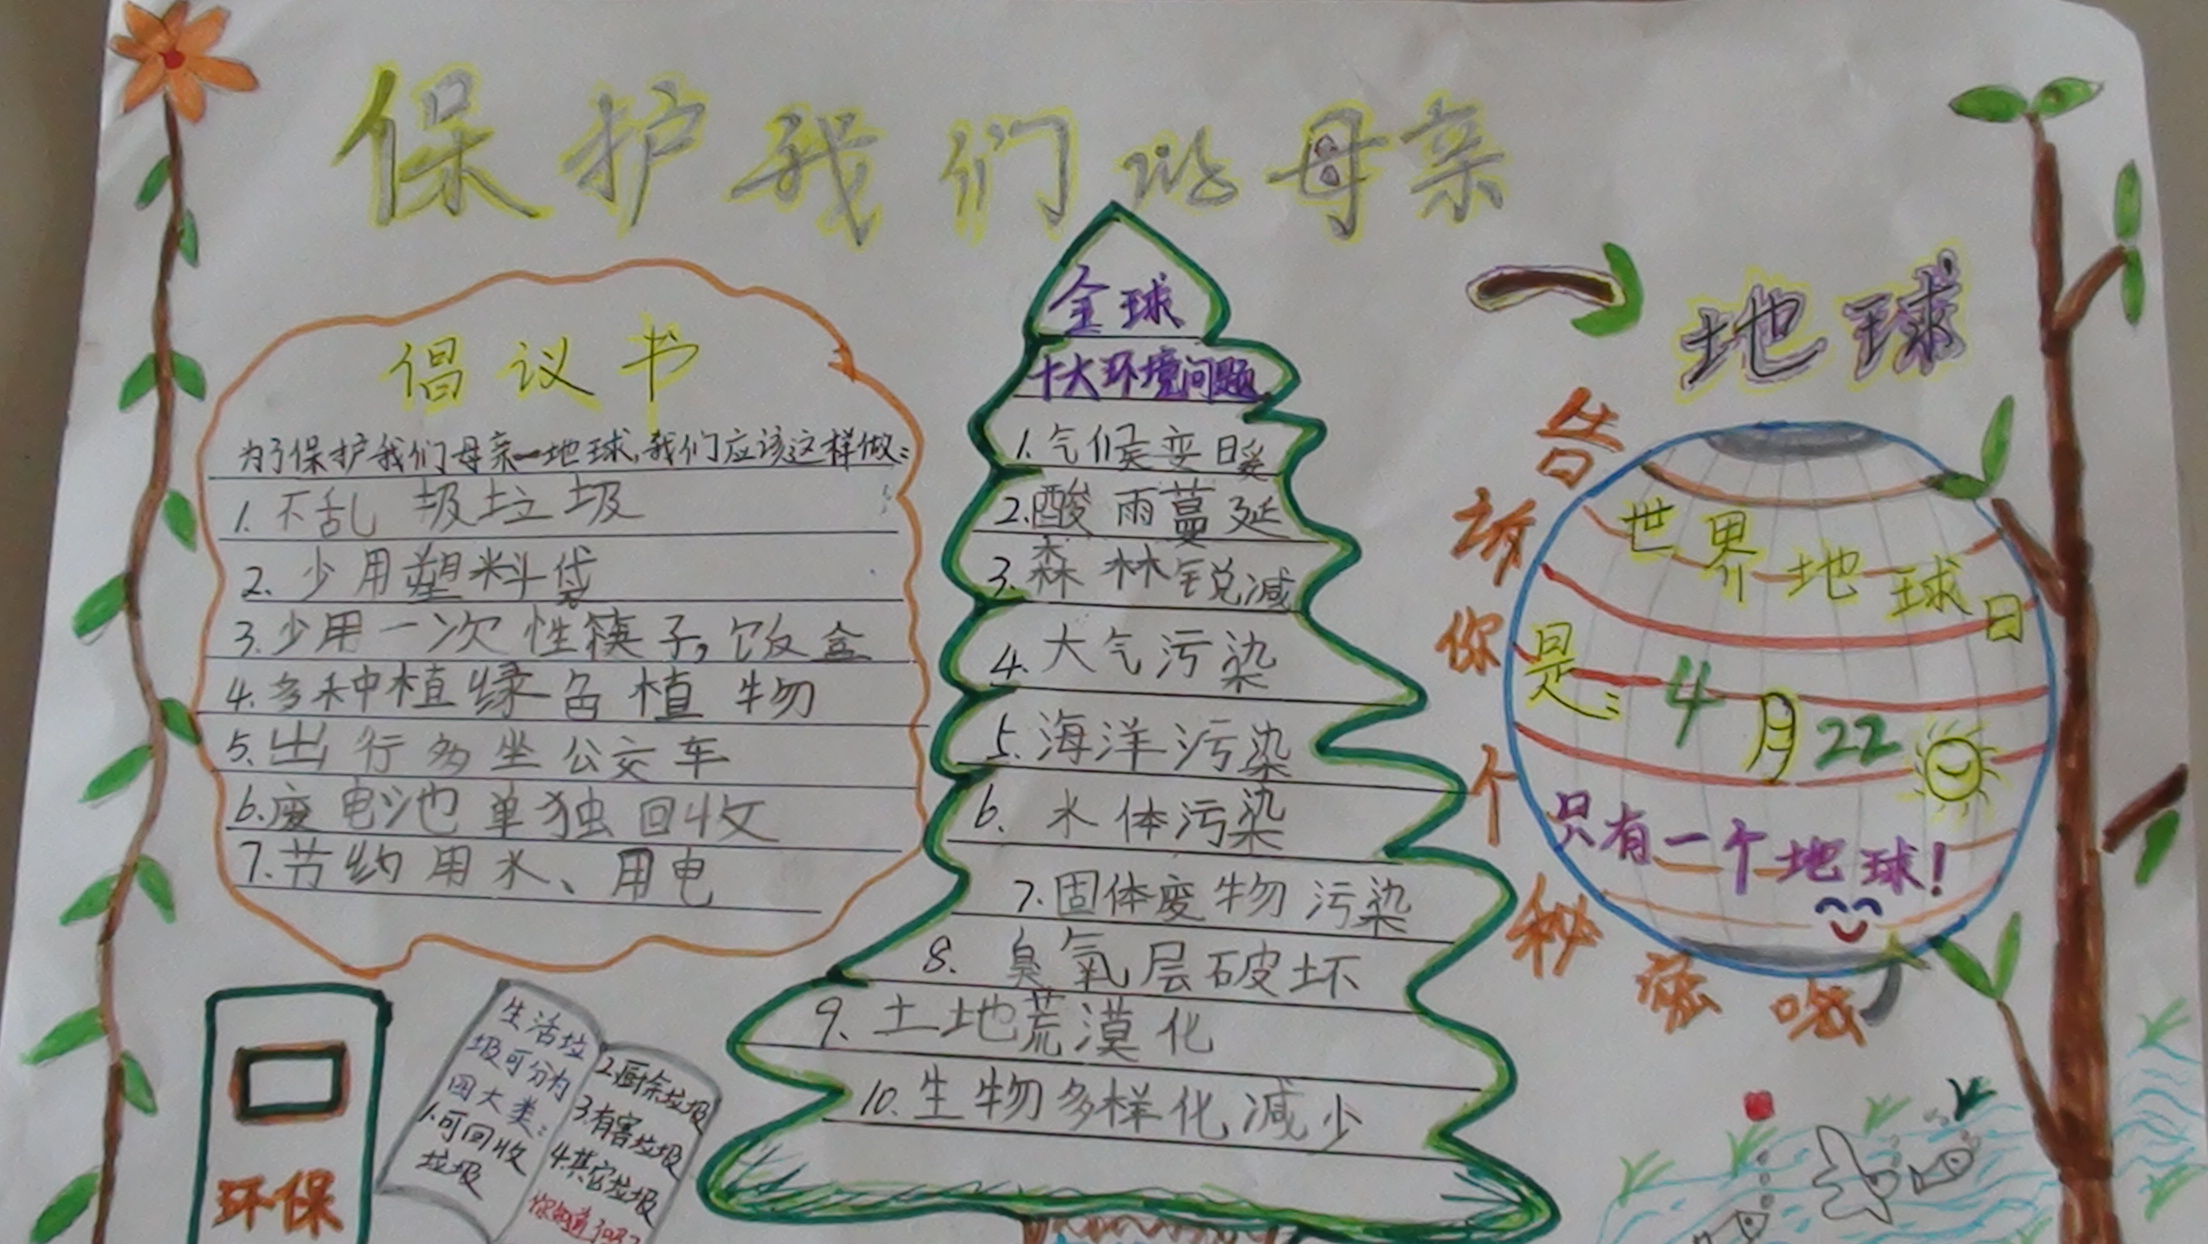 保护我们的母亲
地球
倡议书
为了保护我们母亲一地球,我们应该这样做:
1.不乱 圾垃圾
2.少用塑料袋
3.少用一次性筷子,饭盒
4.多种植绿色植物
5.出行多坐公交车
6.废电池单独回收
7.节约用水、用电
全球
十大环境问题
1.气候变暖
2.酸雨蔓延
3.森林锐减
4.大气污染
5.海洋污染
6.水体污染
7.固体废物污染
8.臭氧层破坏
9.土地荒漠化
10.生物多样化减少
告诉你个秘密哦
世界地球日
是:4月22
只有一个地球!
环保
生活垃
圾可分为
四大类:
1.可回收
垃圾
2.厨余垃圾
3.有害垃圾
4.其它垃圾
你知道了吗?